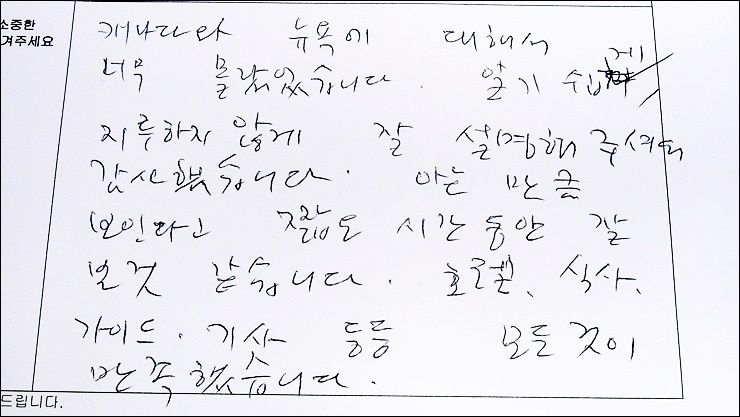 소중한
겨주세요
캐나다와 뉴욕에 대해서
너무 몰랐었습니다. 알기 쉽게
지루하지 않게 잘 설명해 주셔서
감사했습니다. 아는 만큼
보인다고 짧은 시간동안 잘
본것 같습니다. 호텔, 식사,
가이드, 기사 등등 모든 것이
만족했습니다.
드립니다.